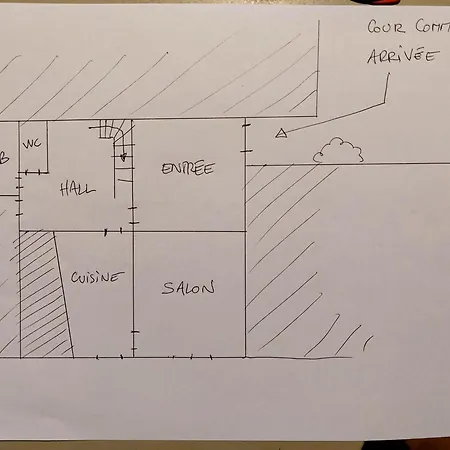 COUR COMM
ARRIVÉE
WC
B
HALL
ENTRÉE
CUISINE
SALON